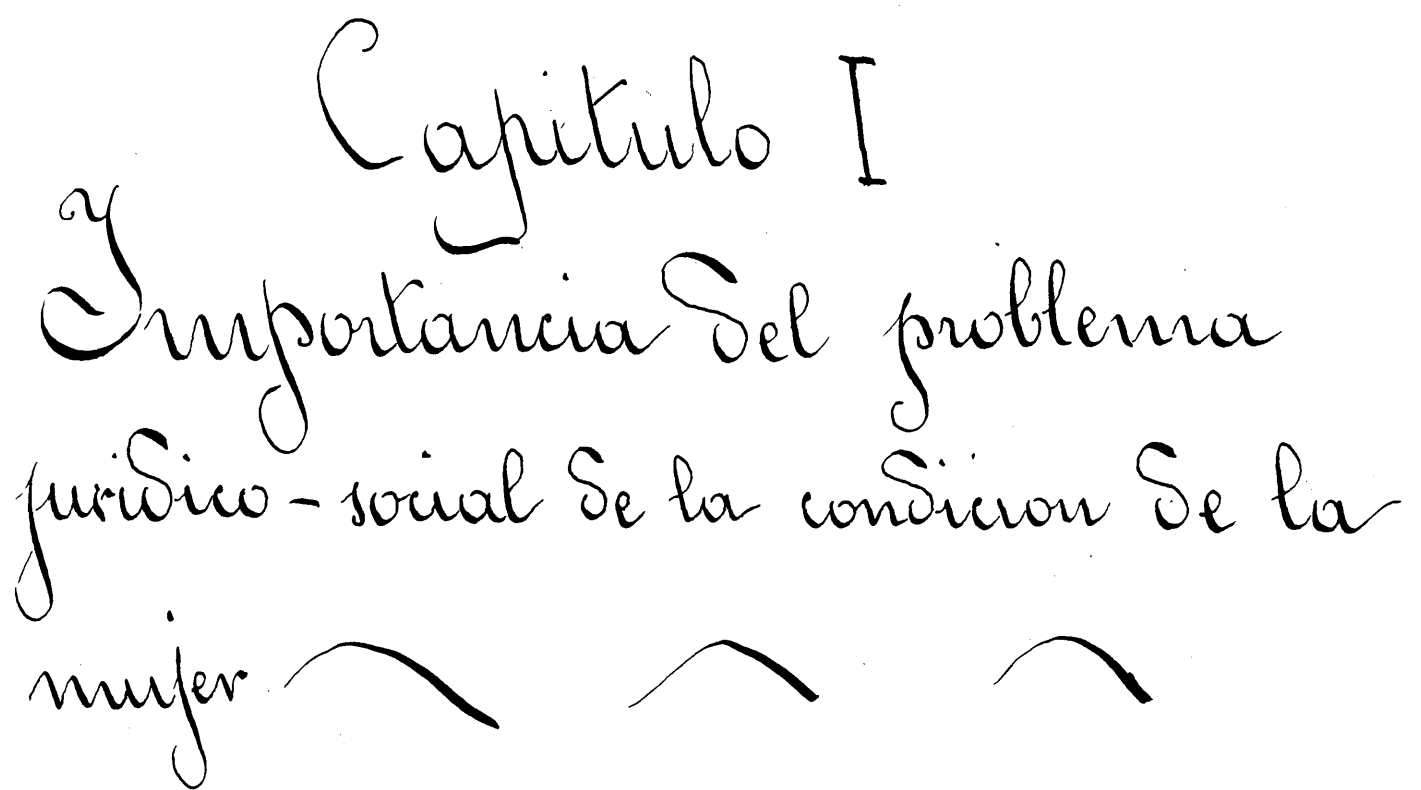 Capitulo I
Importancia del problema
juridico-social de la condicion de la
mujer